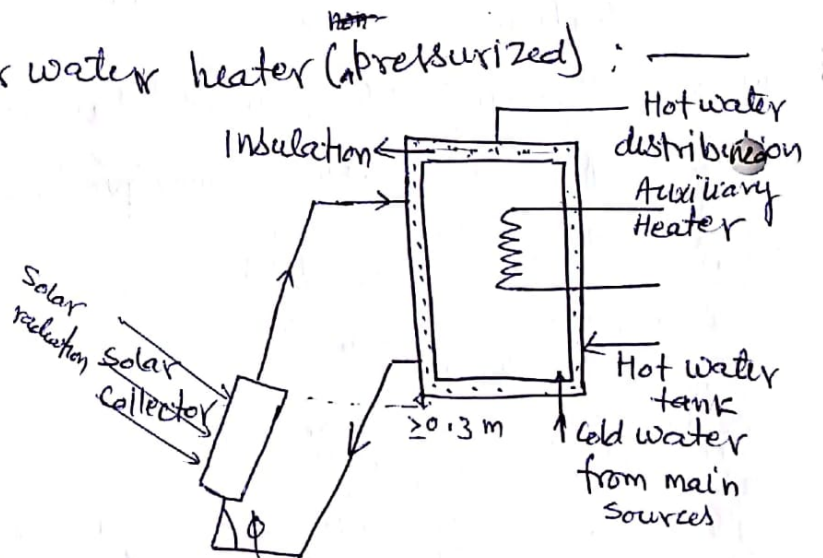 non-
r water heater (pressurized) :
Hot water
distribution
Insulation
Auxiliary
Heater
Solar
radiation
Solar
Collector
Hot water
tank
≥0.3 m
Cold water
from main
sources
φ